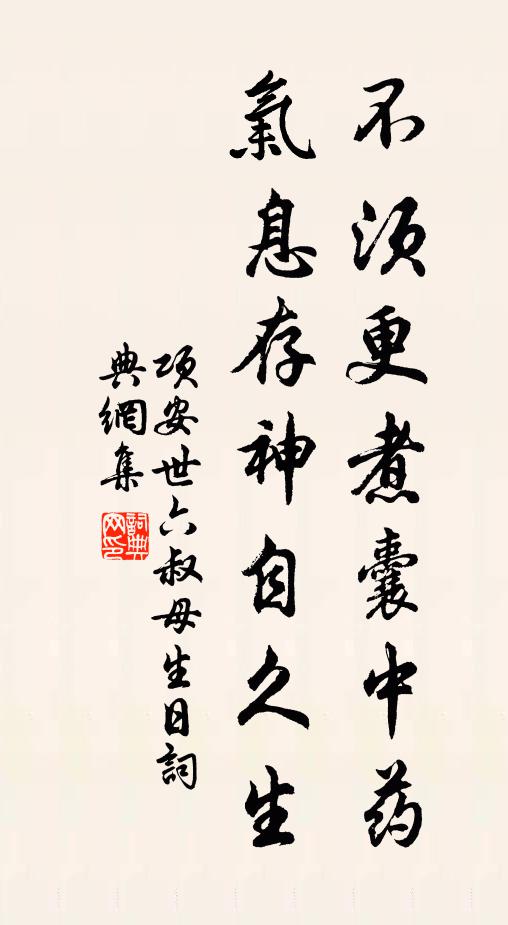 不須更煮囊中药
氣息存神自久生
項安世六叔母生日詞
典網集
詞典網印